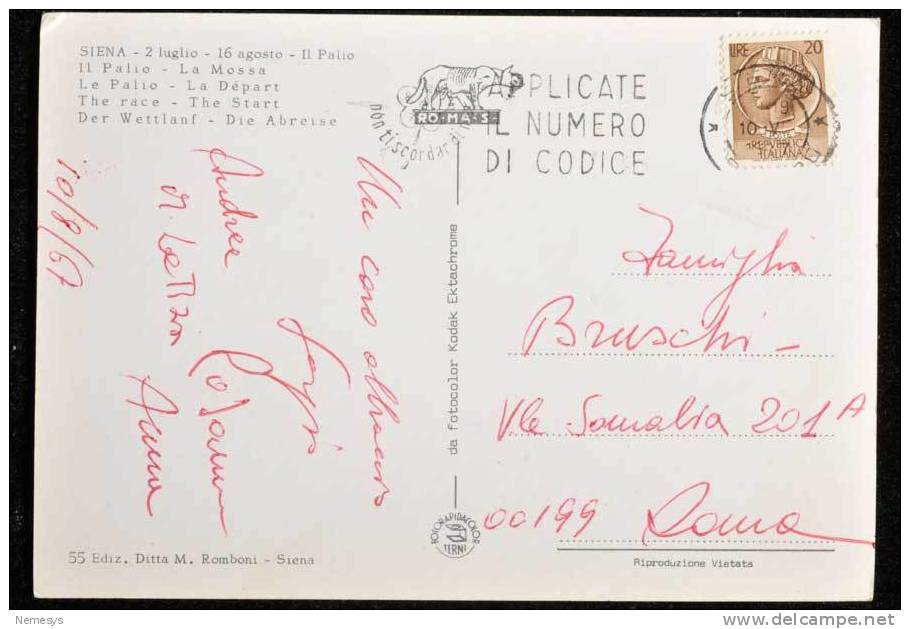 SIENA - 2 luglio - 16 agosto - Il Palio
Il Palio - La Mossa
Le Palio - La Départ
The race - The Start
Der Wettlanf - Die Abreise
10/8/67
Un caro abbraccio
Andrea
Anna
55 Ediz. Ditta M. Romboni - Siena
da fotocolor Kodak Ektachrome
FOTORAPIDACOLOR
TERNI
RO·MA·S·
non ti scordar di
APPLICATE
IL NUMERO
DI CODICE
LIRE 20
POSTE
REPVBBLICA
ITALIANA
Famiglia
Bruschi -
Vle Somalia 201A
00199 Roma
Riproduzione Vietata
Nemesys
delcampe.net